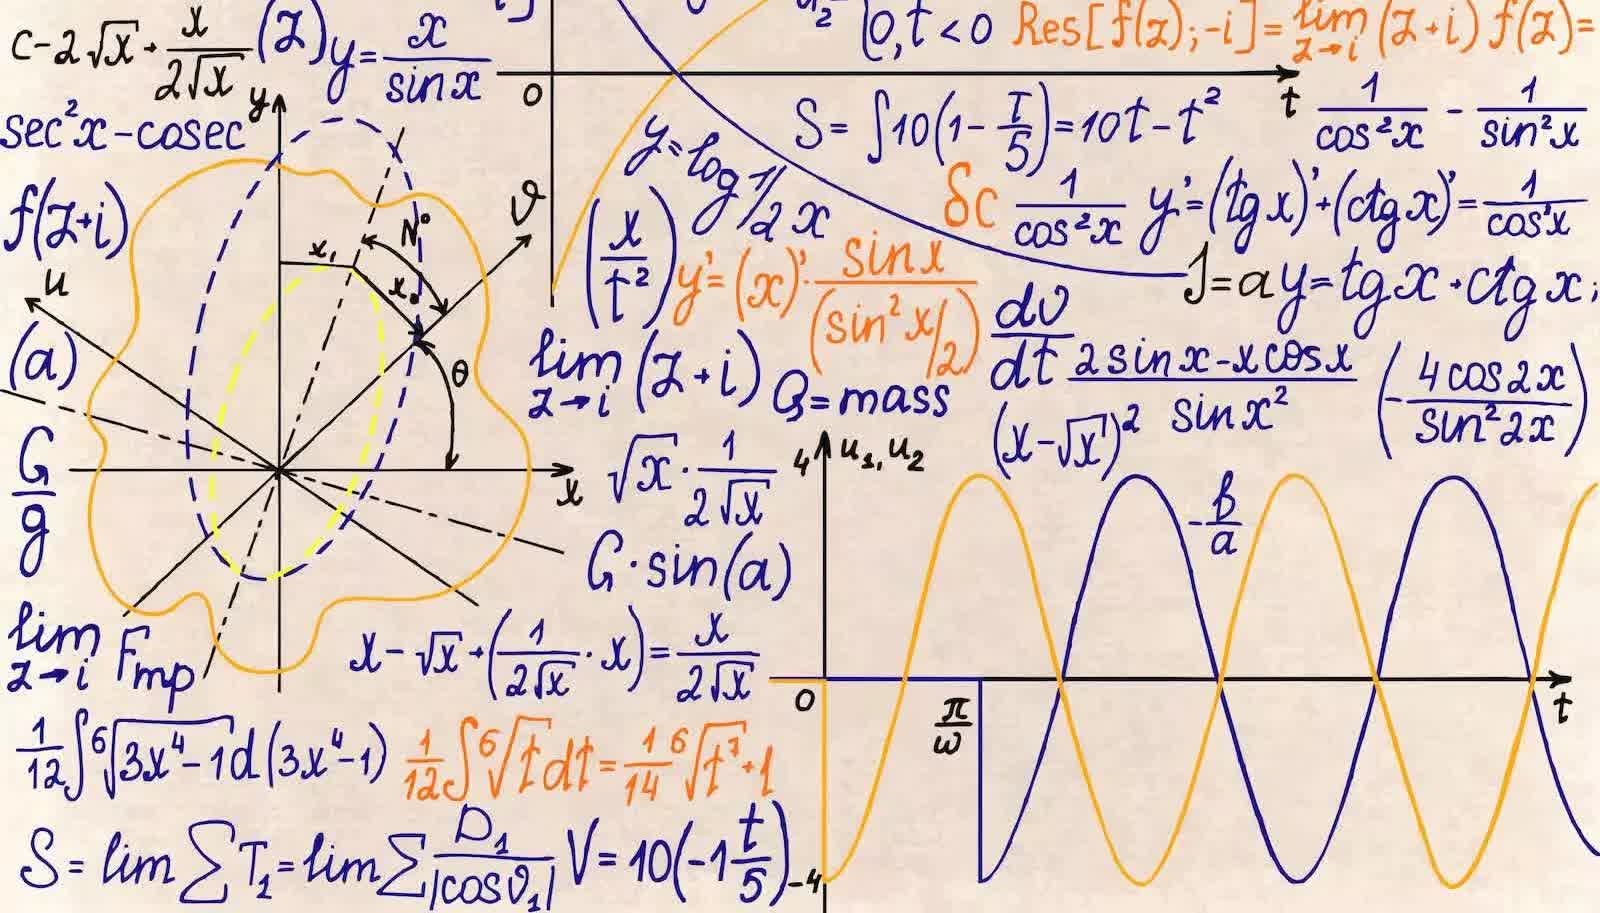 C-2√x+x/(2√x)
(z)
y=x/sin x
0, t<0
Res[f(z);-i]=lim z→i (z+i) f(z)=
0
t
sec²x-cosec
y
S=∫10(1-t/5)=10t-t²
1/cos²x - 1/sin²x
y=log 1/2 x
f(z+i)
N°
ϑ
(x/t²)
δc
1/cos²x
y'=(tgx)'+(ctgx)'=1/cos²x
x₁
x₀
u
y'=(x)'·sinx/(sin²x/2)
J=a
y=tgx+ctgx;
dv/dt
(a)
θ
lim z→i (z+i)
Q=mass
(2sinx-xcosx)/sinx²
(-4cos2x/sin²2x)
(x-√x)²
G/g
x
√x·1/(2√x)
4
u₁,u₂
-b/a
G·sin(a)
lim z→i
Fmp
x-√x+(1/(2√x)·x)=x/(2√x)
0
π/ω
t
1/12∫⁶√(3x⁴-1)d(3x⁴-1)
1/12∫⁶√t dt=1/14 ⁶√t⁷+1
S=lim∑T₁=lim∑D₁/|cosϑ₁|
V=10(-1t/5)
-4